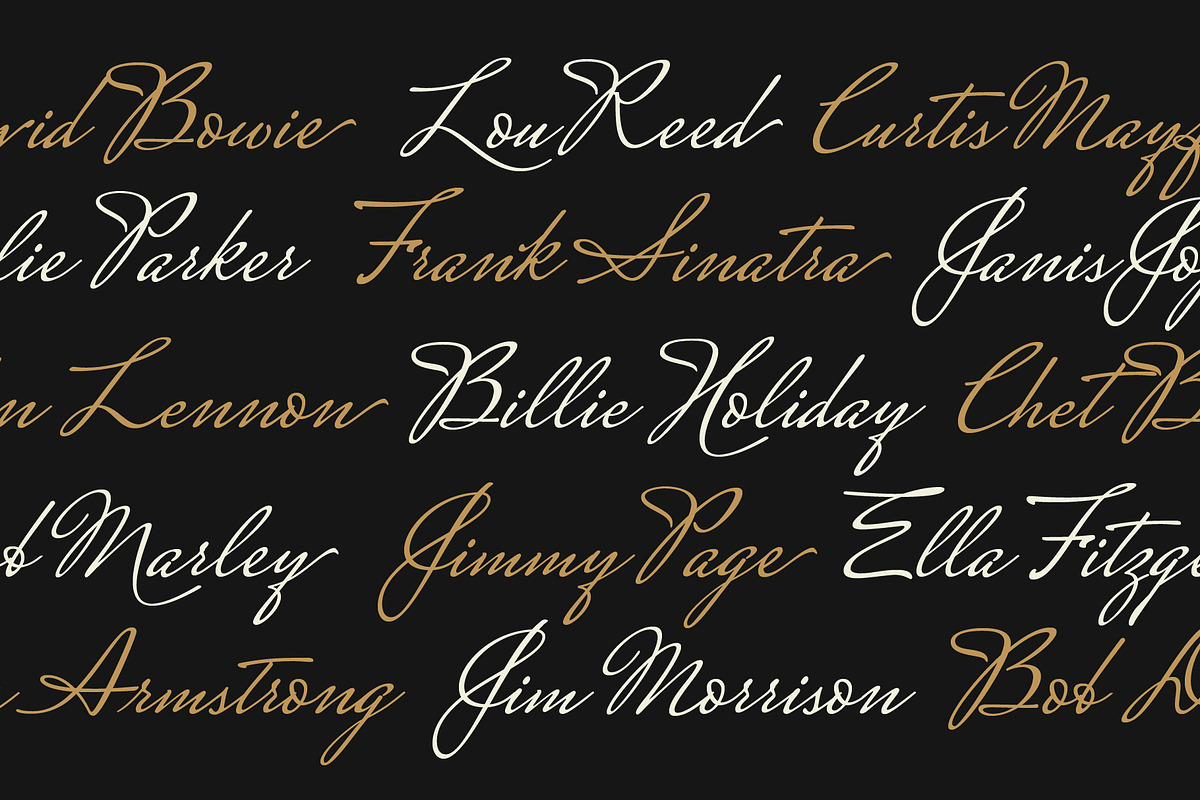 vid Bowie Lou Reed Curtis Mayf
lie Parker Frank Sinatra Janis Jop
n Lennon Billie Holiday Chet B
b Marley Jimmy Page Ella Fitzge
Armstrong Jim Morrison Bob D